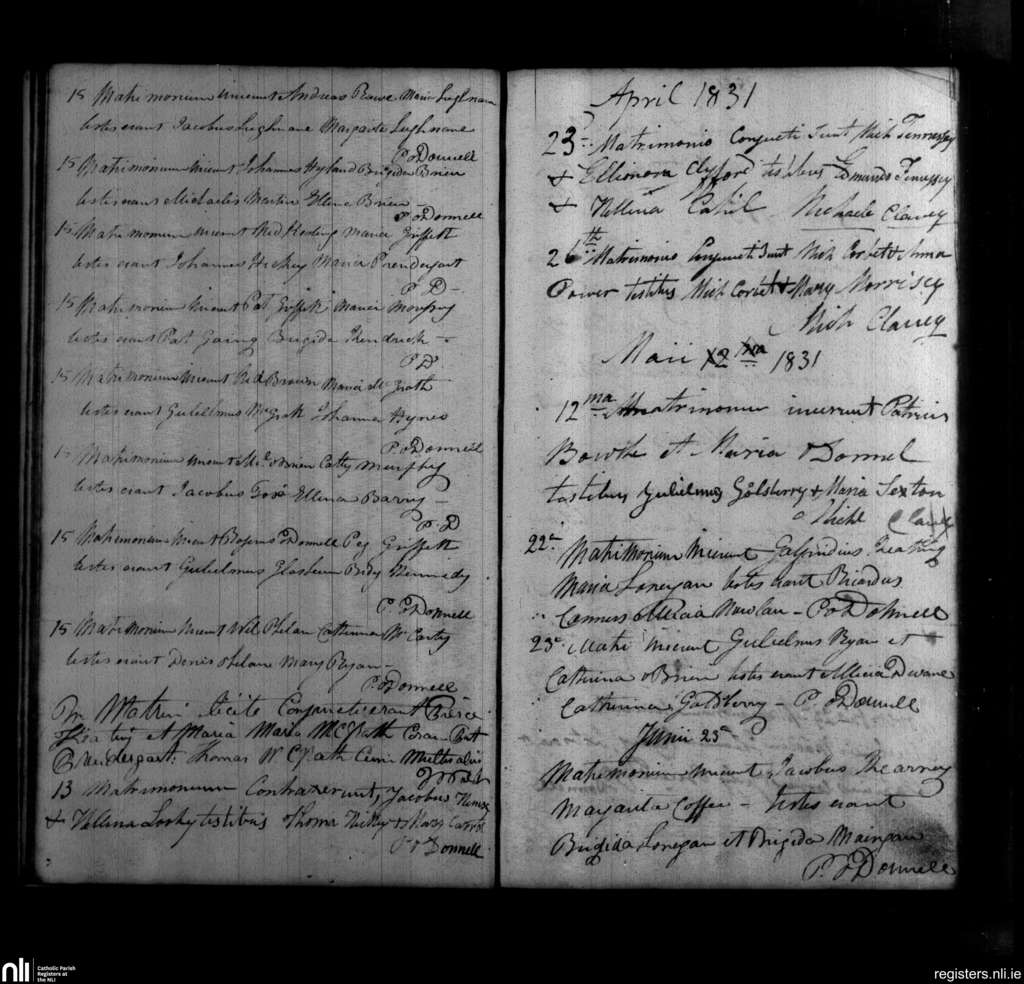 15 Matrimonium inierunt Andreas Power Maria Lughnane
testes erant Jacobus Lughnane Margarita Lughnane
P. O Donnell
15 Matrimonium inierunt Johannes Hyland Brigida Brien
testes erant Michaelis Martin Ellena Brien
P. O Donnell
15 Matrimonium inierunt Maria Griffett
testes erant Johannes Hickey Maria Prendergast
P. D
15 Matrimonium inierunt Pat Griffett Maria
testes erant Pat Brigida Kendrick
P. D
15 Matrimonium inierunt Brown Maria McGrath
testes erant Gulielmus McGrath Johanna Hynes
P. O Donnell
15 Matrimonium inierunt O Brien Catty Murphy
testes erant Jacobus Ellena Barry
P. D
15 Matrimonium inierunt O Donnell Peg Griffett
testes erant Gulielmus Bidy Kennedy
P. O Donnell
15 Matrimonium inierunt Will Phelan Catherina McCarty
testes erant Denis Phelane Mary Ryan
P. O Donnell
In Matrim licite Conjuncti erant Pierce
et Maria Maria McGrath Coram Pat
Prendergast Thomas McGrath Cum Multis aliis
13 Matrimonium Contraxerunt, Jacobus
& Hellena testibus Thoma & Mary Carrol
P. O Donnell
April 1831
23 Matrimonio Conjuncti Sunt Mich Fennessy
& Ellionora Clyfford testibus Edmundo Fennessy
& Hellena Cahil Michaele Clancy
26th Matrimonio Conjuncti Sunt Mich Corbet & Anna
Power testibus Mich Corbet & Mary Morrisey
Mich Clancy
Maii 12ma 1831
12ma Matrimonium inierunt Patrici
et Maria O Donnel
testibus Gulielmus Golsberry & Maria Sexton
Michl Clancy
22a Matrimonium inierunt Keating
Maria Lonegan testes erant Ricardus
Alicia Nowlan - P O Donnell
23a Matri inierunt Gulielmus Ryan et
Catherina O Brien testes erant Alicia Dwane
Catherina Goldsberry - P. O Donnell
Junii 25a
Matrimonium inierunt Jacobus Kearney
Margarita Coffee - testes erant
Brigida Lonegan et Brigida Maingan
P. O Donnell
nli
Catholic Parish
Registers at
the NLI
registers.nli.ie